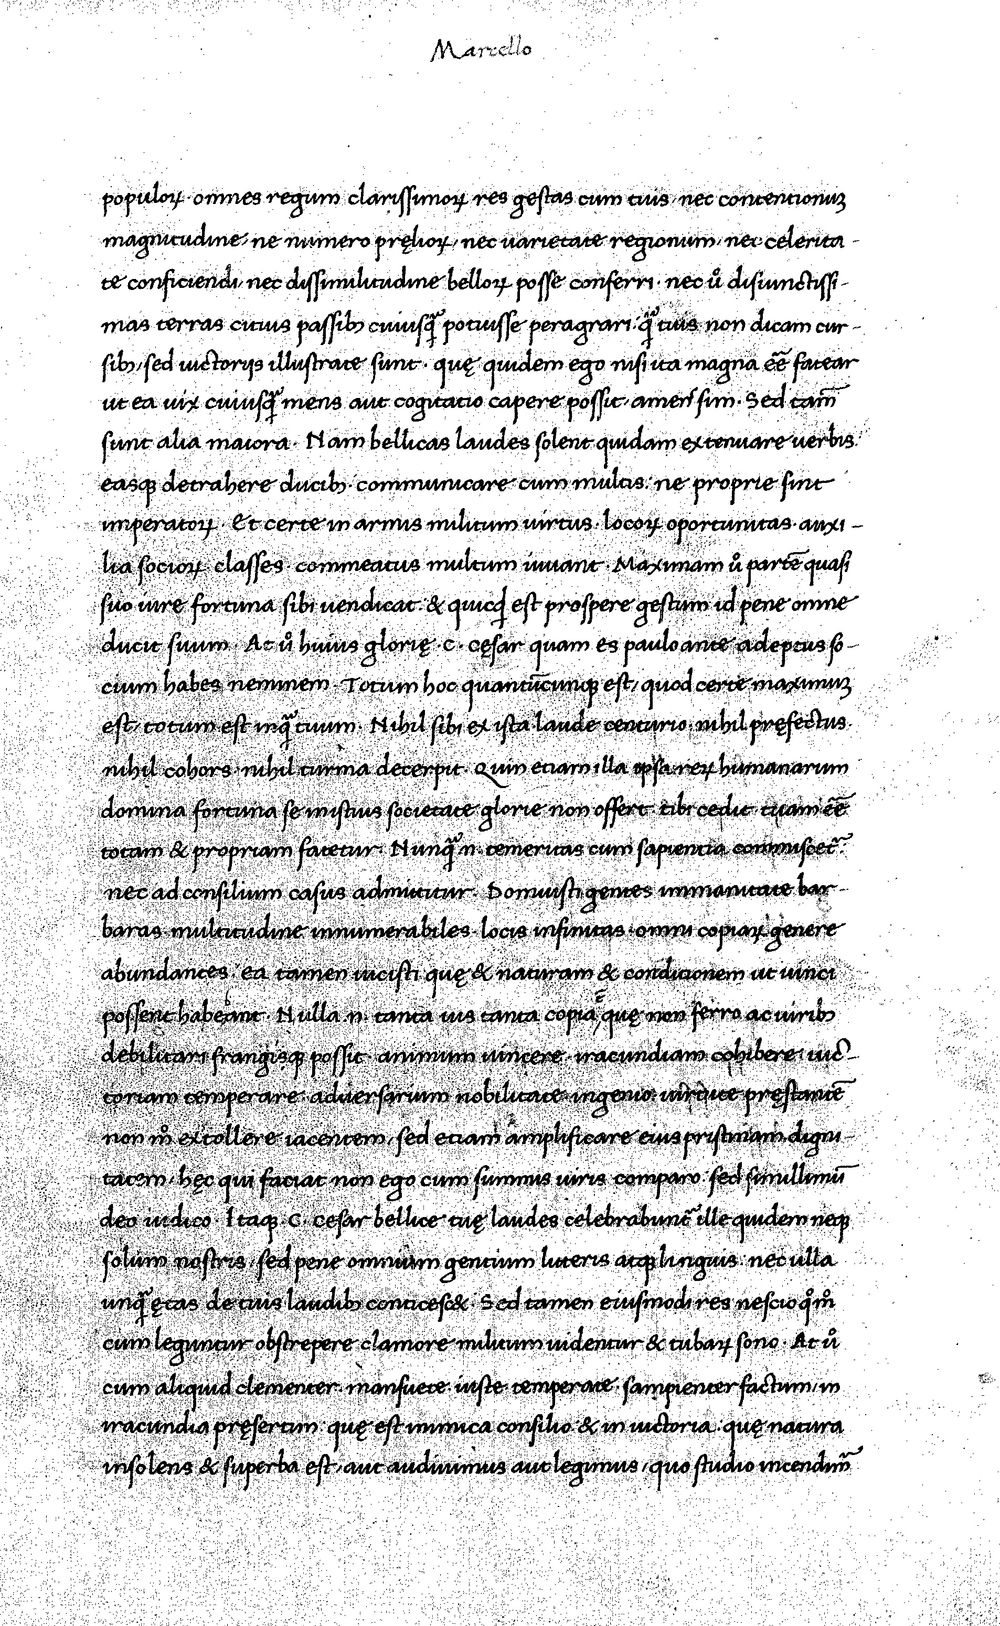 Marcello
populoꝝ · omnes regum clarissimoꝝ res gestas cum tuis / nec contentionuꝫ
magnitudine / ne numero pręlioꝝ / nec uarietate regionum / nec celerita-
te conficiendi / nec dissimilitudine belloꝝ posse conferri · nec ů disiunctissi-
mas terras citius passibꝫ cuiusq̃ potuisse peragrari · q̃ tuis non dicam cur-
sibꝫ / sed uictorijs illustrate sunt · quę quidem ego nisi ita magna eē̃ fatear
ut ea uix cuiusq̃ mens aut cogitatio capere possit / amens sim · Sed tam̃
sunt alia maiora · Nam bellicas laudes solent quidam extenuare uerbis ·
easqꝫ detrahere ducibꝫ · communicare cum multis · ne proprie sint
imperatoꝝ · Et certe in armis militum uirtus · locoꝝ oportunitas · auxi-
lia socioꝝ classes · commeatus multum iuuant · Maximam ů partē quasi
suo iure fortuna sibi uendicat · & quicꝗd est prospere gestum id pene omne
ducit suum · At ů huius glorię · C · cęsar quam es pauloante adeptus so-
cium habes neminem · Totum hoc quantūcunqꝫ est / quod certe maximuꝫ
est / totum est inq̃ tuum · Nihil sibi ex ista laude centurio · nihil pręfectus ·
nihil cohors · nihil turma decerpit · Quin etiam illa ipsa reꝝ humanarum
domina fortuna se in istius societate glorie non offert · tibi cedit · tuam eē̃
totam & propriam fatetur · Nunq̃ n · temeritas cum sapientia commiscet᷑ ·
nec ad consilium casus admittitur · Domuisti gentes immanitate bar-
baras multitudine innumerabiles · locis infinitas · omni copiaꝝ genere
abundantes · ea tamen uicisti quę & naturam & conditionem ut uinci
possent habebant · Nulla · n · tanta uis tanta copia ē quę non ferro ac uiribꝫ
debilitari frangisqꝫ possit · animum uincere · iracundiam cohibere · uic-
toriam temperare · aduersarium nobilitate · ingenio · uirtute pręstantē
non mͦ extollere iacentem / sed etiam amplificare eius pristinam digni-
tatem / hęc qui faciat non ego cum summis uiris comparo · sed simillimū
deo iudico · Itaqꝫ · C · cęsar bellice tuę laudes celebrabunt᷑ ille quidem neqꝫ
solum nostris / sed pene omnium gentium litteris atqꝫ linguis · nec ulla
unq̃ ętas de tuis laudibꝫ conticesc& · Sed tamen eiusmodi res nescio qͦmͦ
cum leguntur obstrepere clamore militum uidentur & tubaꝝ sono · At ů
cum aliquid clementer · mansuete · iuste · temperate · sampienter factum / in
iracundia pręsertim · quę est inimica consilio & in uictoria · quę natura
insolens & superba est / aut audiuimus aut legimus / quo studio incendim᷑